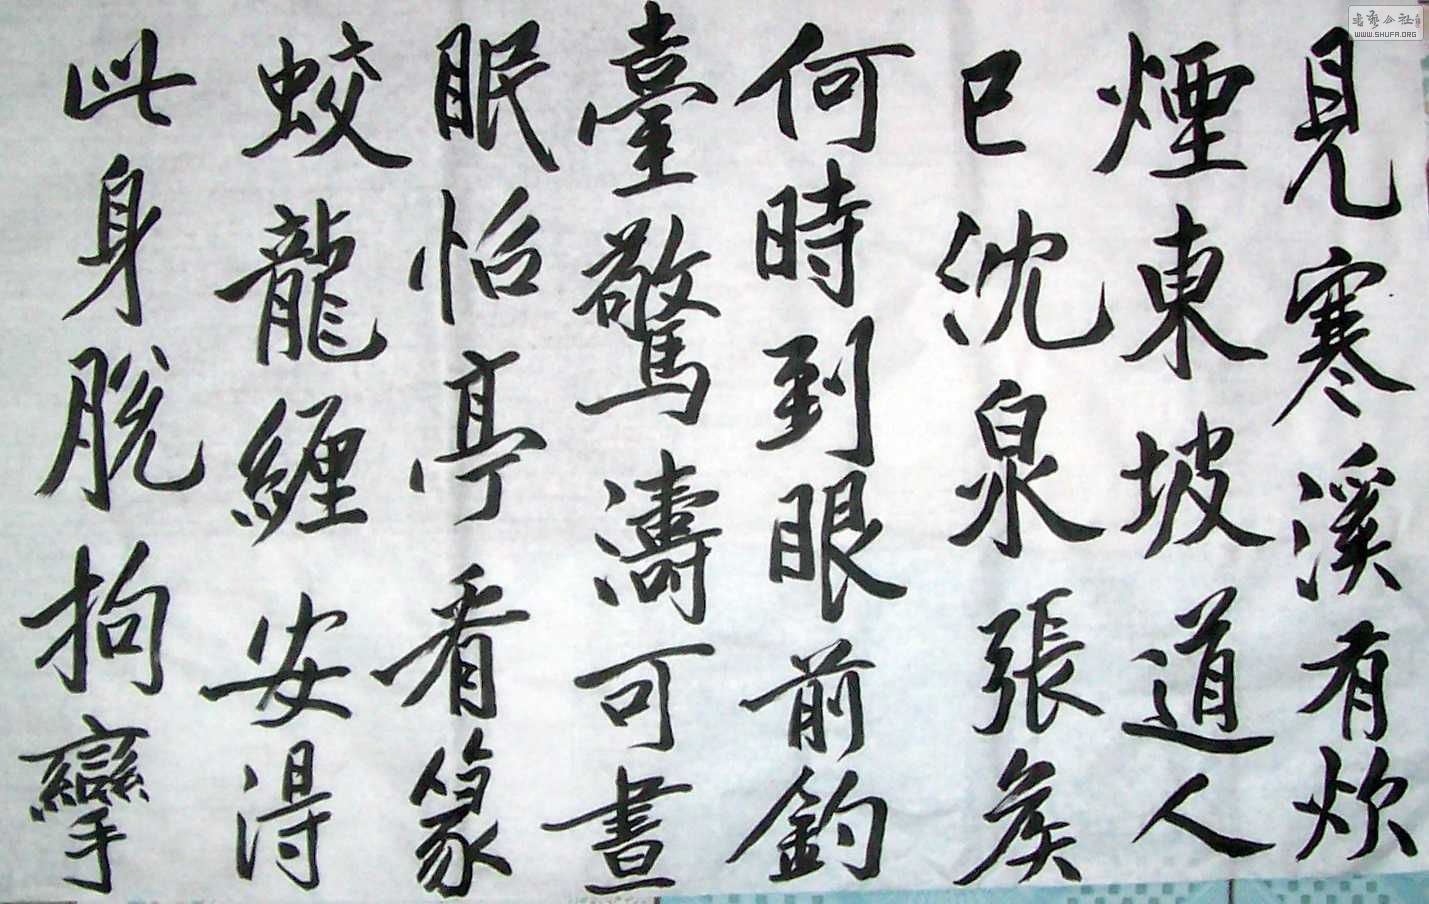 見寒溪有炊
煙東坡道人
已沈泉張矦
何時到眼前釣
臺驚濤可晝
眠怡亭看篆
蛟龍纏安得
此身脫拘攣
书艺公社
WWW.SHUFA.ORG